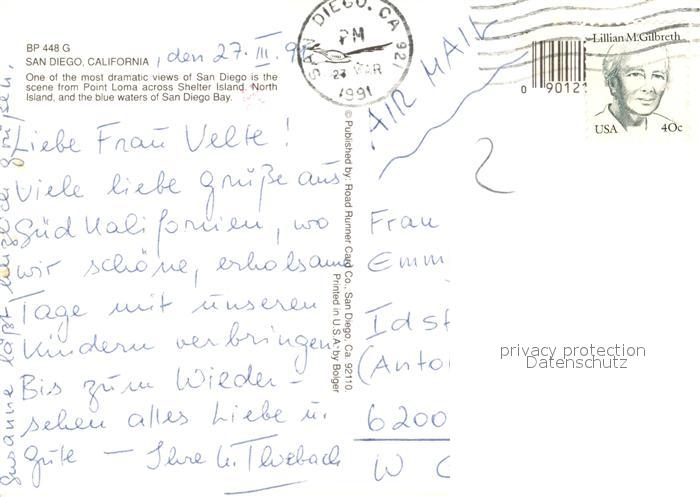 BP 448 G
SAN DIEGO, CALIFORNIA , den 27. III. 91
One of the most dramatic views of San Diego is the
scene from Point Loma across Shelter Island, North
Island, and the blue waters of San Diego Bay.
Liebe Frau Velte !
Viele liebe Grüße aus
Südkalifornien, wo
wir schöne, erholsame
Tage mit unseren
Kindern verbringen.
Bis zum Wieder-
sehen alles Liebe u.
Gute — Ihre
Susanne läßt herzlich grüßen.
© Published by: Road Runner Card Co., San Diego, Ca. 92110
Printed in U.S.A. by Bolger
SAN DIEGO, CA 92
PM
27 MAR
1991
AIR MAIL
0 90121
Lillian M. Gilbreth
USA 40c
Frau
Emm
Idst
(Anto
6200
W G
privacy protection
Datenschutz